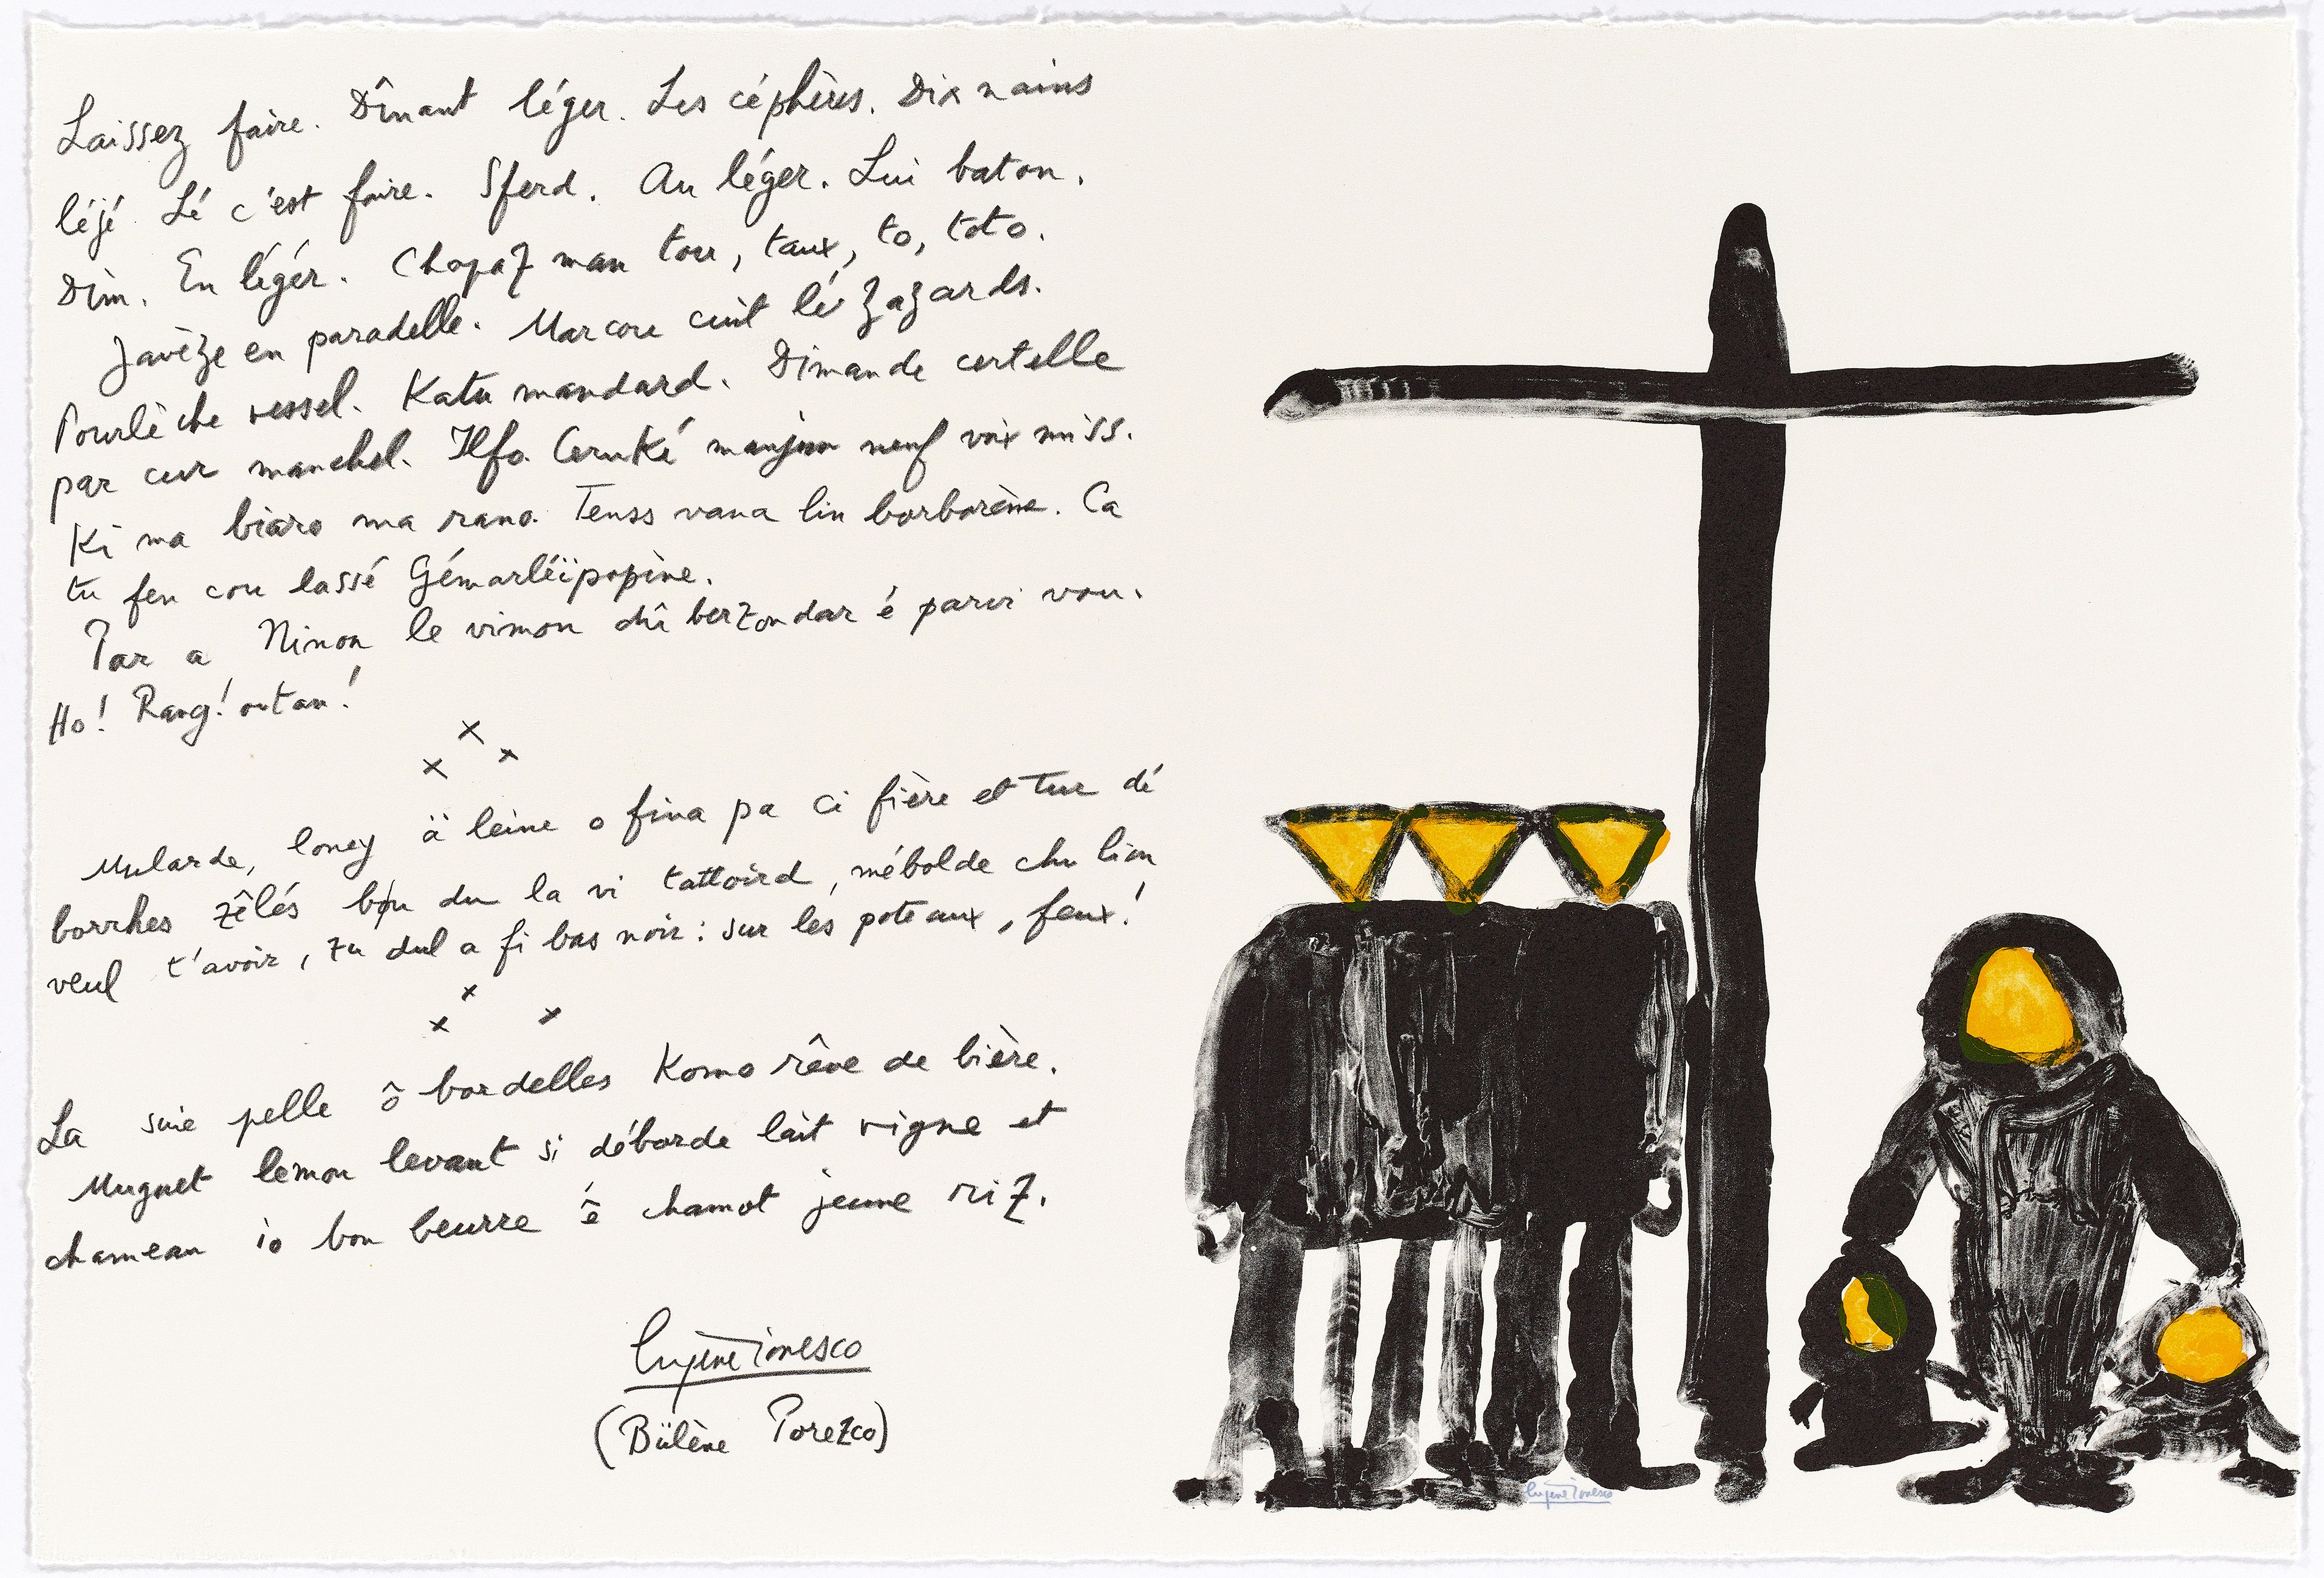 Laissez faire. Dînant léger. Les céphères. Dix nains
léjé Lé c'est faire. Sferd. Au léger. Lui baton.
Dim. En légér. Chopaz man tou, taux, to, toto.
Javèze en paradelle. Marcou cuit lé zazards.
Pourlèche vessel. Katu mandard. Dimande certelle
par cur manchel. Ilfo Ceruké manjun neuf voix miss.
Ki ma biaro ma rano. Tenss vana lin borborène. Ca
tu feu cou lassé Gémarléïpopène.
Par a Ninon le vimon dû berzondar é parvi vou.
Ho! Rang! outan!
x
x x
Mularde, loney ä leine o fina pa ci fière et tue dé
borrhes zêlés bou du la vi tattoird, mébolde chu lion
veul t'avoir, zu dul a fi bas noir: sur les poteaux, feux!
x
x x
La suie pelle ô bordelles Komo rêve de bière.
Muguet lemon levant si déborde lait vigne et
chameau io bon beurre ê chamot jeune riz.
Eugène Ionesco
(Bülène Porezco)
Eugène Ionesco